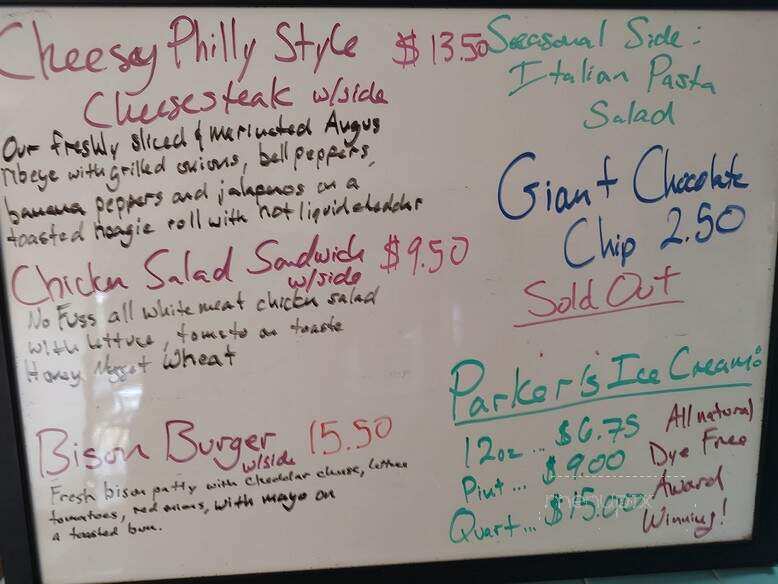 Cheesey Philly Style $13.50
Cheesesteak w/side
Our freshly sliced & marinated Angus
ribeye with grilled onions, bell peppers,
banana peppers and jalapenos on a
toasted hoagie roll with hot liquid cheddar
Chicken Salad Sandwich $9.50
w/side
No Fuss all white meat chicken salad
with lettuce, tomato on toaste
Honey Nugget Wheat
Bison Burger 15.50
w/side
Fresh bison patty with cheddar cheese, lettuce
tomatoes, red onions, with mayo on
a toasted bun.
Seasonal Side:
Italian Pasta
Salad
Giant Chocolate
Chip 2.50
Sold Out
Parker's Ice Cream:
12oz... $6.75
Pint... $9.00
Quart... $15.00
All natural
Dye Free
Award
Winning!
menupix